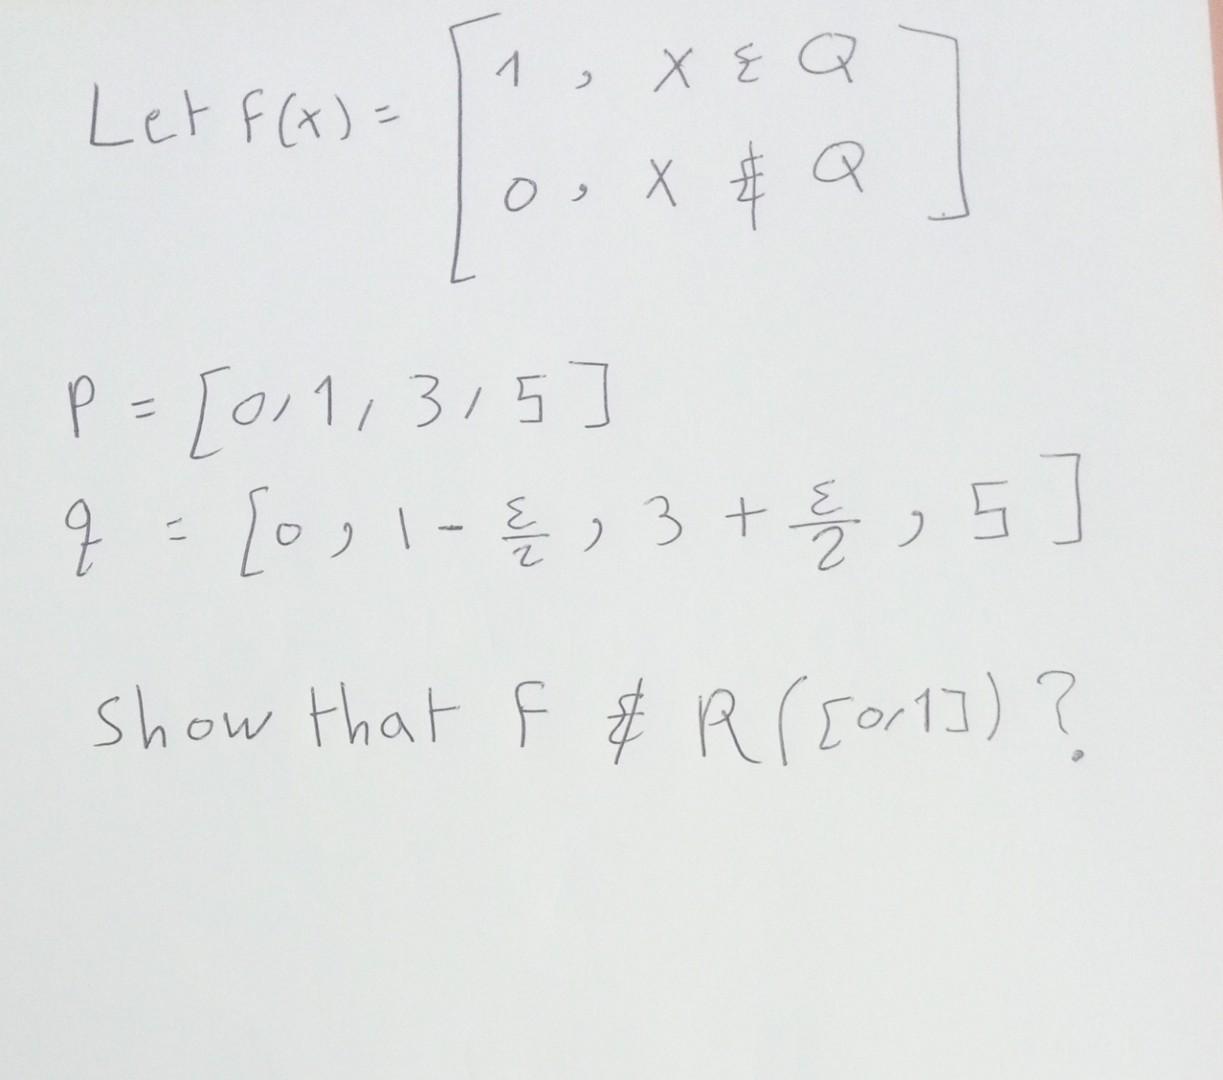 Let f(x) = [ 1 , x ε Q ]
[ 0 , x ∉ Q ]
P = [0, 1, 3, 5]
q = [0, 1 - ε/2, 3 + ε/2, 5]
show that F ∉ R([0,1]) ?